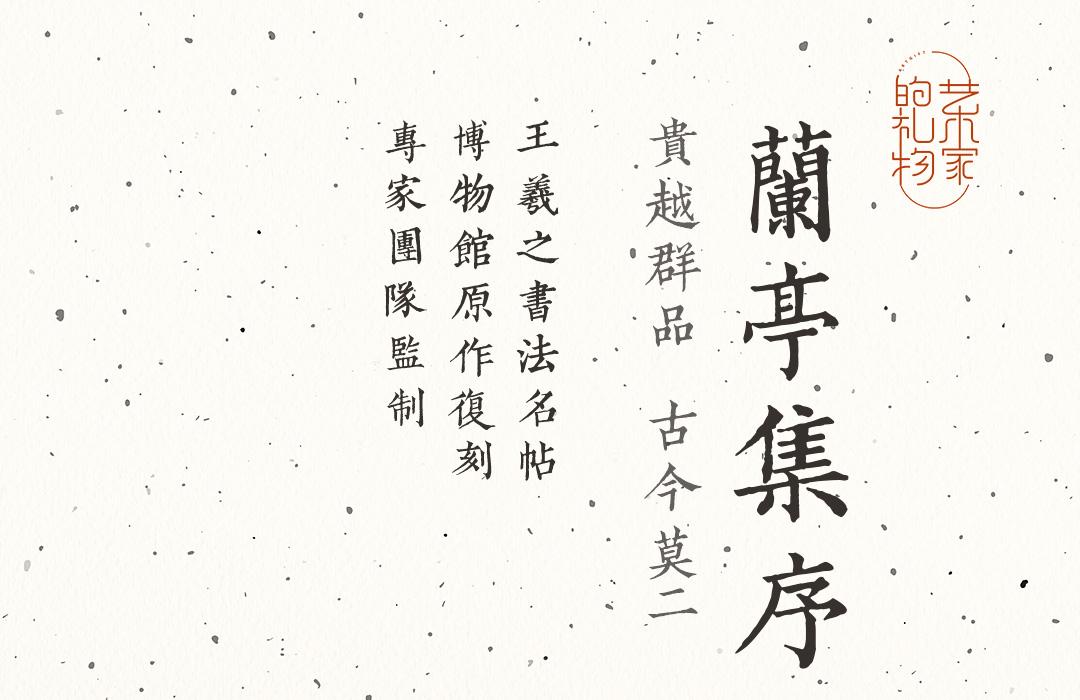 艺术家
的礼物
蘭亭集序
貴越群品 古今莫二
王羲之書法名帖
博物館原作復刻
專家團隊監制